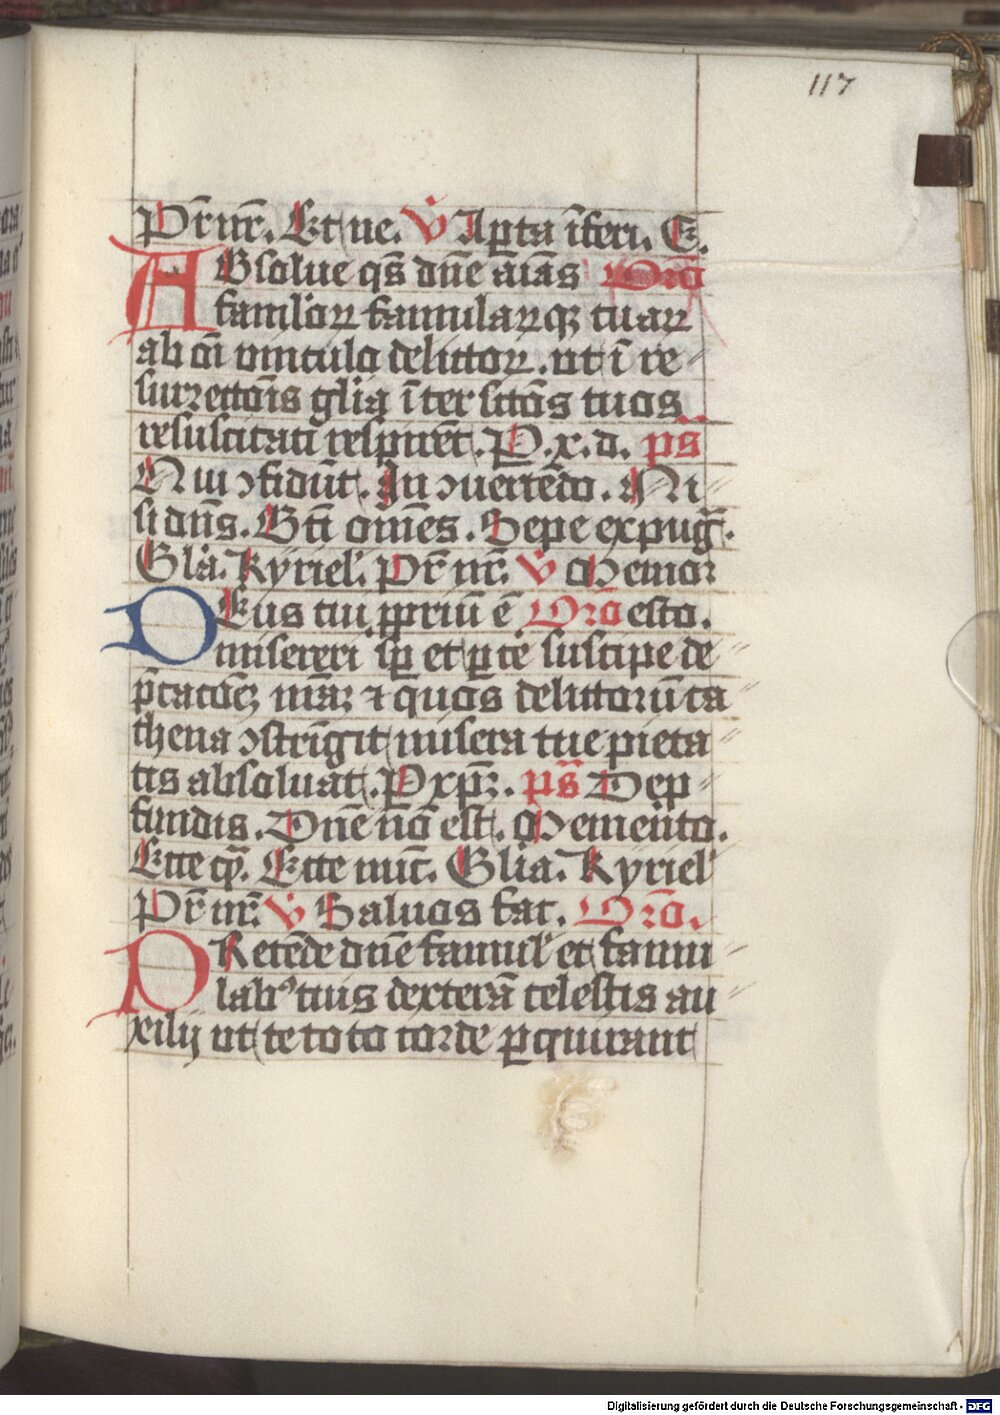 117
Pr̄ nr̄. Et ne. V̇ A pꝑta īferi. E.
ABsolue qs̄ dn̄e aīas Oro
familoꝝ famularꝝqꝫ tuaꝝ
ab oī vinculo delictoꝝ. ut ī re
surrectiōis glīa īter sctōs tuos
resuscitati respirēt. P. x. d. ps̄
Qui ↄfidūt. In ↄuertēdo. Ni
si dn̄s. Bt̄i om̄es. Sepe expuḡ.
Glīa. Kyriel. Pr̄ nr̄. V̇ Memor
DEus cui ꝓpriū ē Oro esto.
misereri sp̄ et ꝑcē suscipe de
p̄cacōeꝫ nr̄aꝫ ⁊ quos delictorū ca
thena ↄstrīgit misera tue pieta
tis absoluat. P xpꝫ. ps̄ De ꝓ
fundis. Dn̄e nō est. Memento.
Ecce q̄. Ecce nūc. Glīa. Kyriel
Pr̄ nr̄. V̇ Saluos fac. Oro.
PRetēde dn̄e famul et famu
labꝰ tuis dexterā celestis au
xilij ut te toto corde ꝑquirant
Digitalisierung gefördert durch die Deutsche Forschungsgemeinschaft - DFG